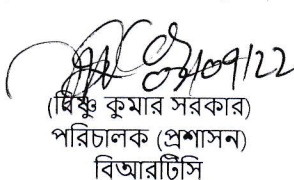 ০৭/০৭/২২
(বিষ্ণু কুমার সরকার)
পরিচালক (প্রশাসন)
বিআরটিসি